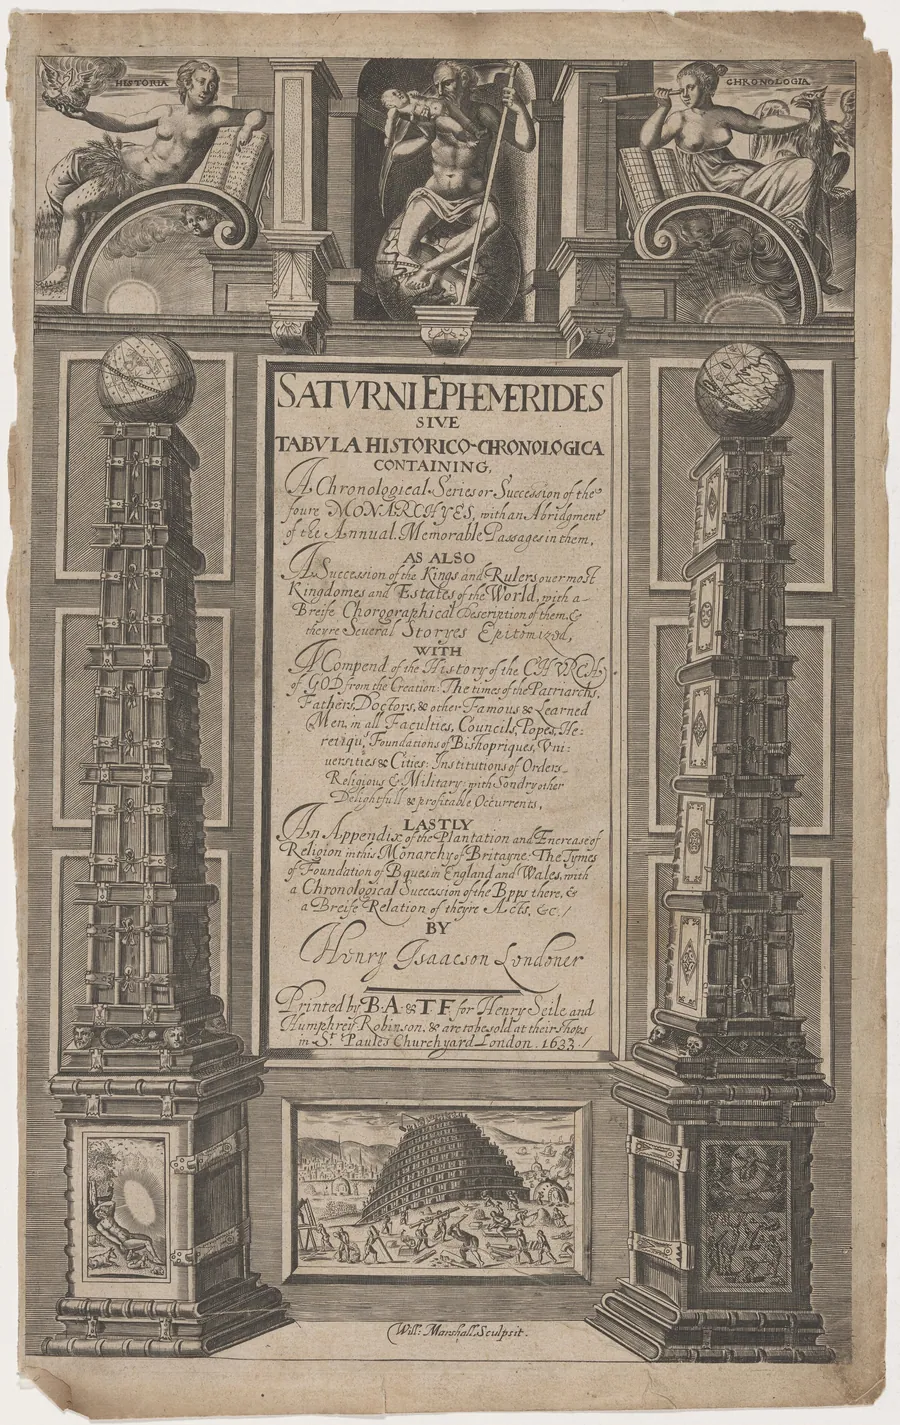 HISTORIA
CHRONOLOGIA
SATVRNI EPHEMERIDES
SIVE
TABVLA HISTORICO-CHRONOLOGICA
CONTAINING,
A Chronological Series or Succession of the
foure MONARCHYES, with an Abridgment
of the Annual. Memorable Passages in them,
AS ALSO
A Succession of the Kings and Rulers over most
Kingdomes and Estates of the World, with a
Breife Chorographical Description of them, &
theyre Several Storyes Epitomized,
WITH
A Compend of the History of the CHVRCH
of GOD from the Creation: The times of the Patriarchs,
Fathers, Doctors, & other Famous & Learned
Men, in all Faculties, Councils, Popes, He:
Foundations of Bishopriques, Vni:
uersities & Cities: Institutions of Orders
Religious & Military: with Sondry other
Delightfull & profitable Occurrents,
LASTLY
An Appendix of the Plantation and Encrease of
Religion in this Monarchy of Britayne: The Tymes
of Foundation of Bques in England and Wales, with
a Chronological Succession of the Bpps there, &
a Breife Relation of theyre Acts, &c. /
BY
Henry Isaacson Londoner
Printed by B·A & T·F. for Henry Seile and
Humphrey Robinson. & are to be sold at their shops
in St. Paules Churchyard London. 1633. /
Will: Marshall. Sculpsit.